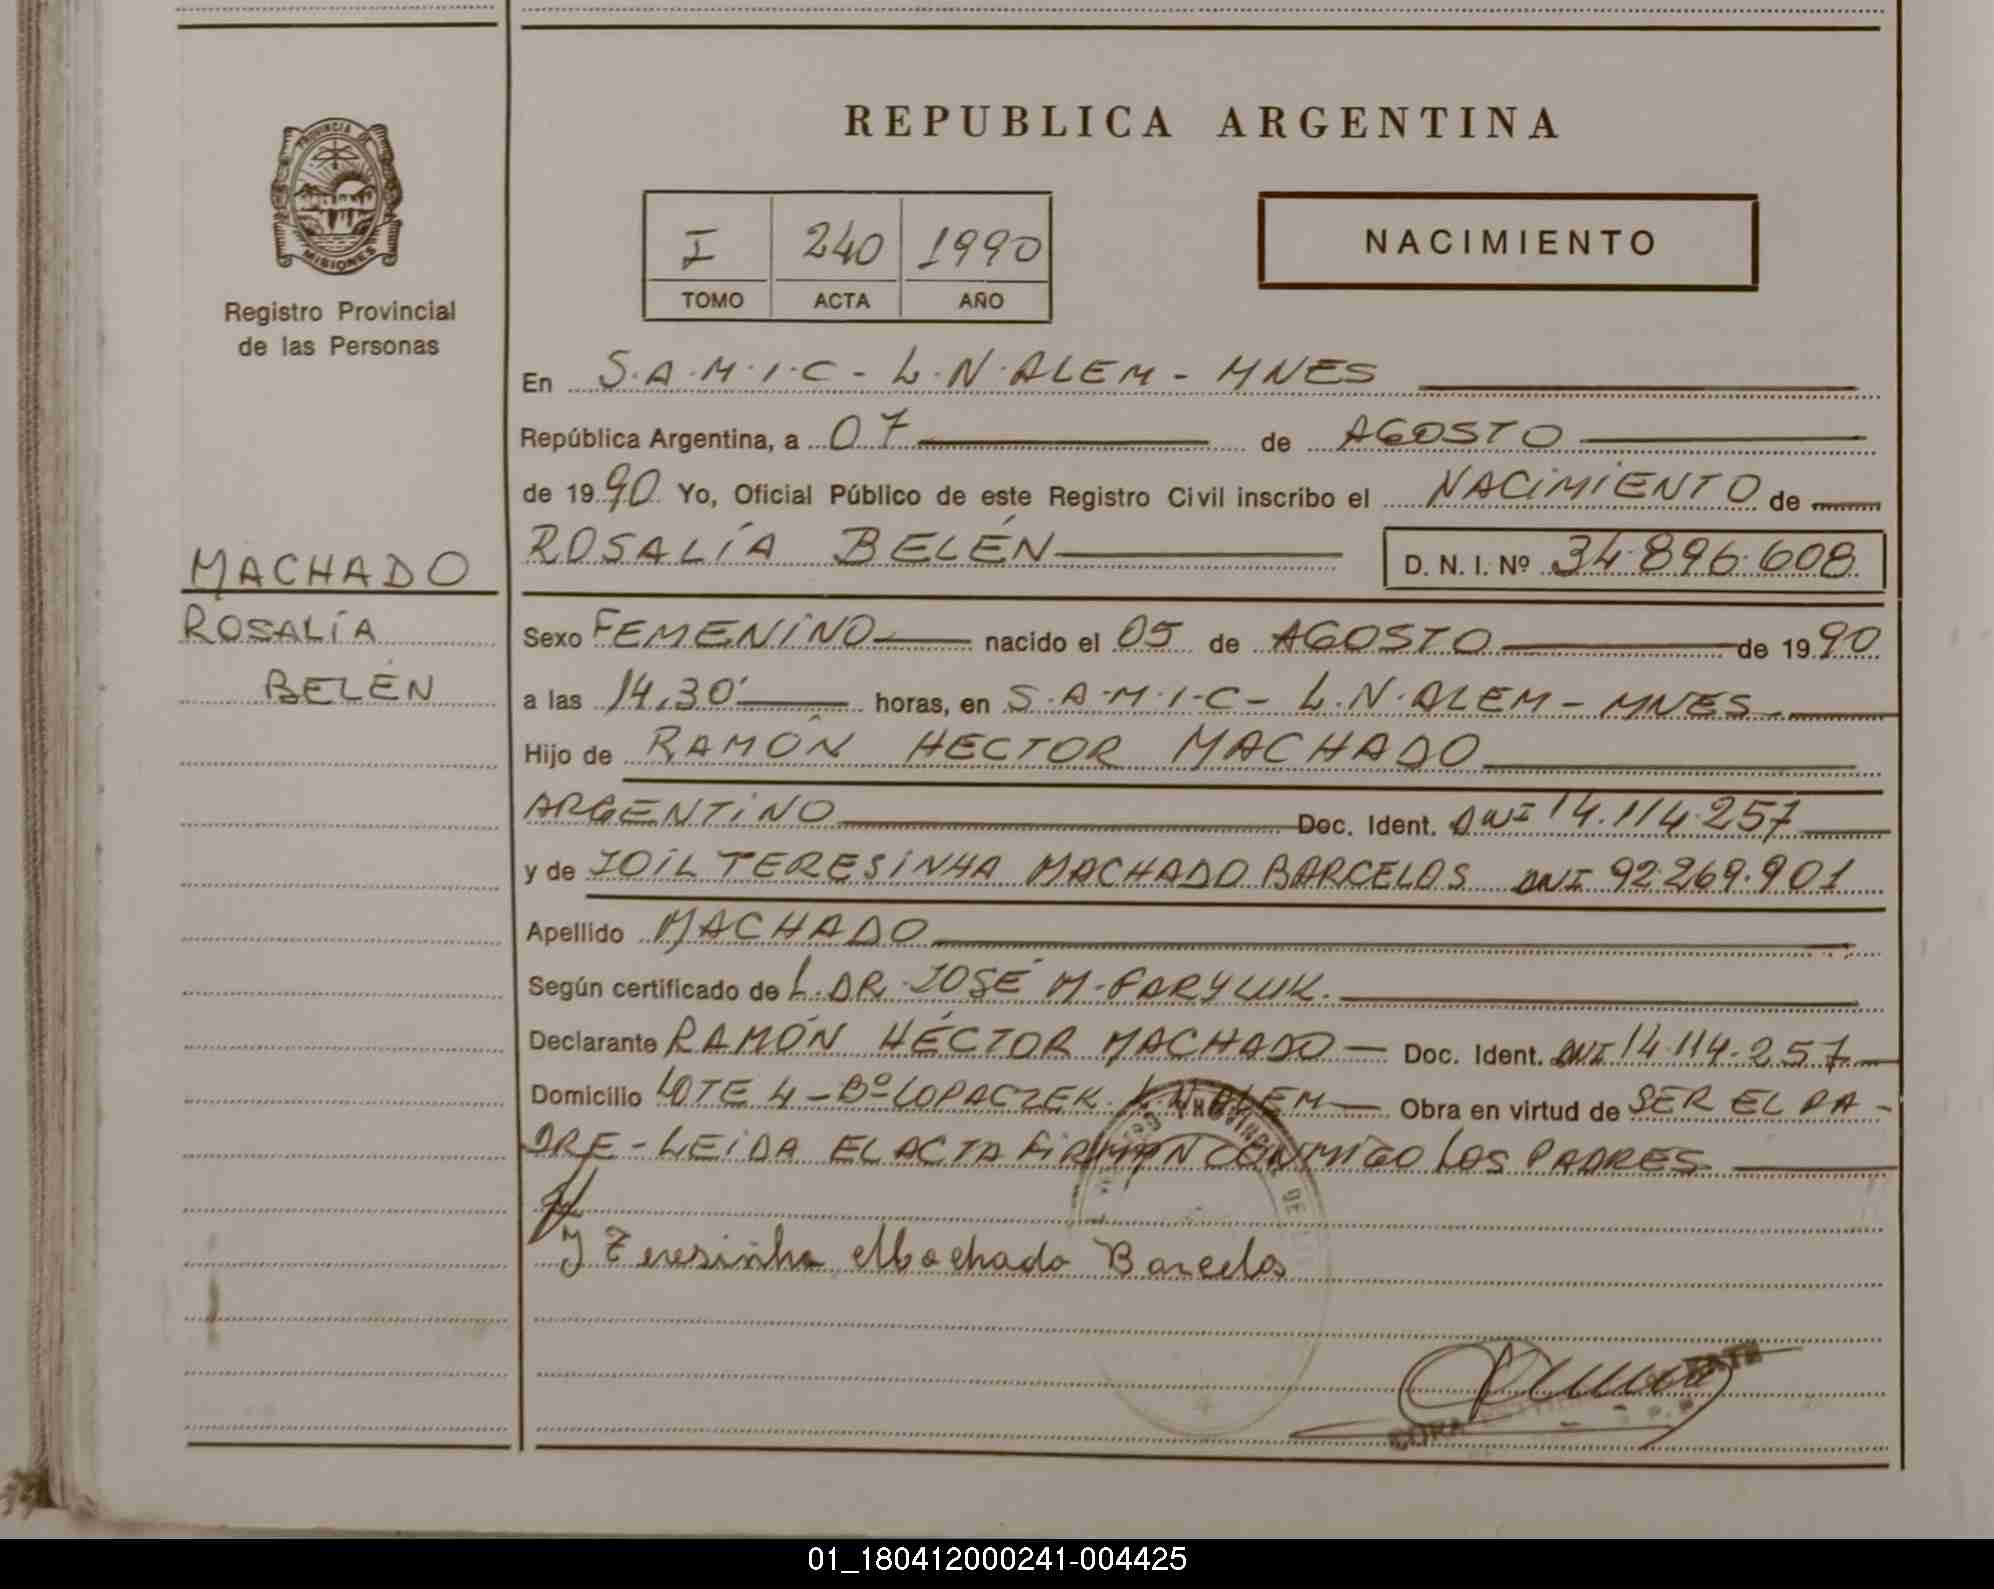 REPUBLICA ARGENTINA
PROVINCIA DE
MISIONES
Registro Provincial
de las Personas
I 240 1990
TOMO ACTA AÑO
NACIMIENTO
En S.A.M.I.C - L.N.ALEM - MNES
República Argentina, a 07 de AGOSTO
de 1990 Yo, Oficial Público de este Registro Civil inscribo el NACIMIENTO de
ROSALÍA BELÉN D. N. I. Nº 34.896.608
MACHADO
ROSALÍA
BELÉN
Sexo FEMENINO nacido el 05 de AGOSTO de 1990
a las 14,30' horas, en S.A.M.I.C - L.N.ALEM - MNES
Hijo de RAMÓN HECTOR MACHADO
ARGENTINO Doc. Ident. DNI 14.114.257
y de IOIL TERESINHA MACHADO BARCELOS DNI 92.269.901
Apellido MACHADO
Según certificado de L. DR. JOSÉ M.
Declarante RAMÓN HÉCTOR MACHADO - Doc. Ident. DNI 14.114.257
Domicilio LOTE 4 - Bº LOPACZEK L N ALEM - Obra en virtud de SER EL PA-
DRE - LEIDA EL ACTA FIRMAN CONMIGO LOS PADRES
J Teresinha Machado Barcelos
01_180412000241-004425